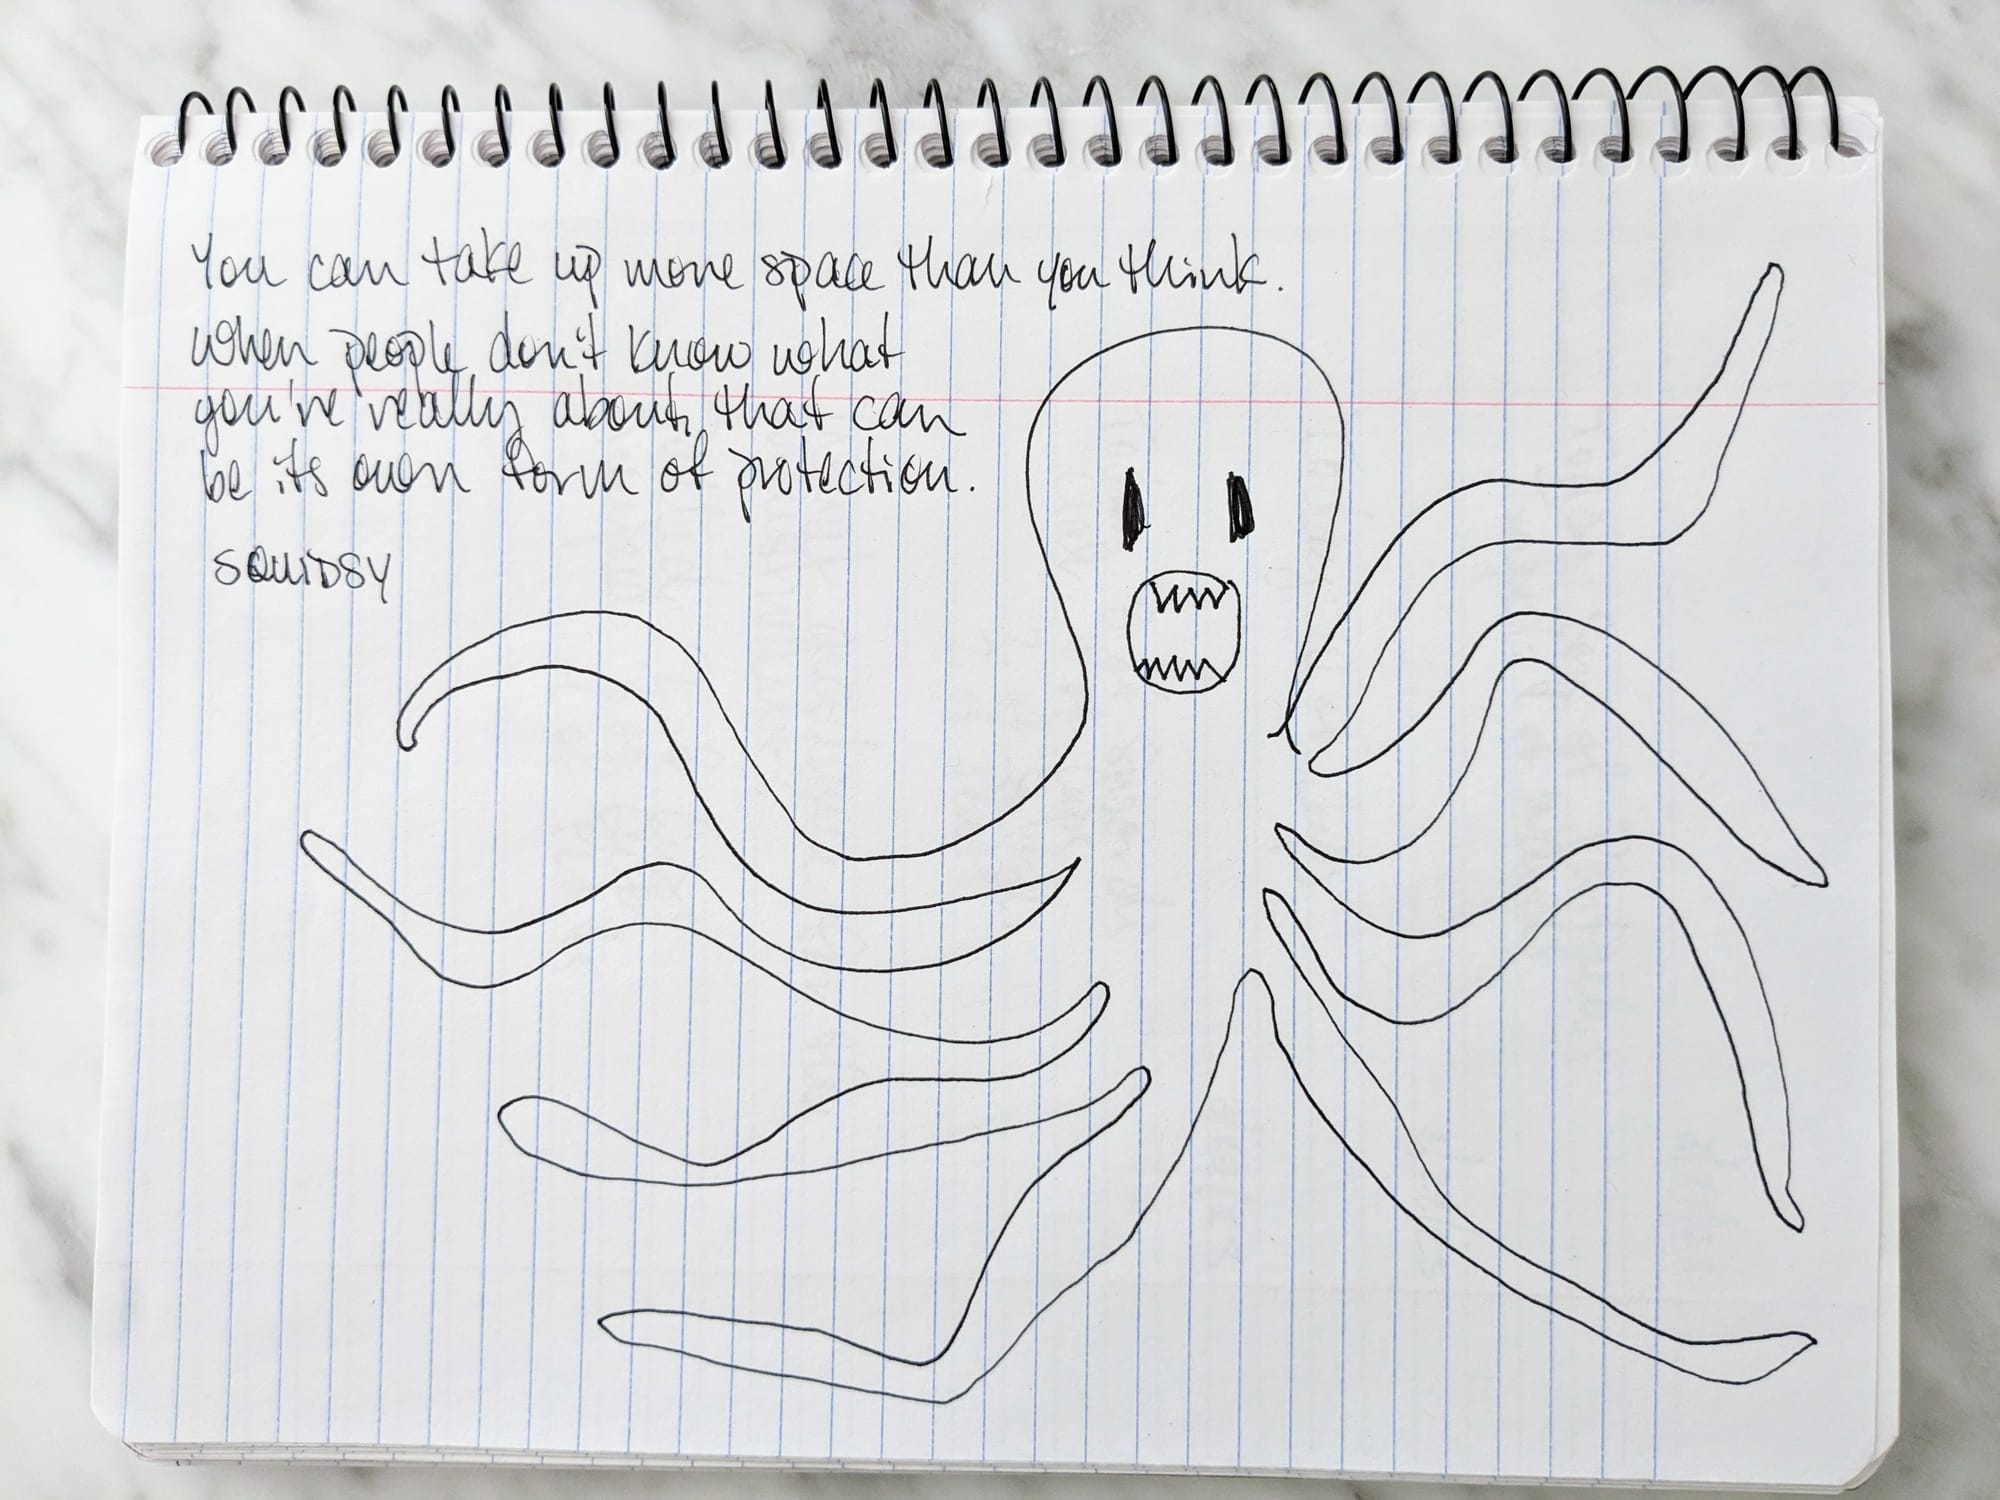 You can take up more space than you think.
When people don't know what
you're really about, that can
be its own form of protection.
SQUIDSY